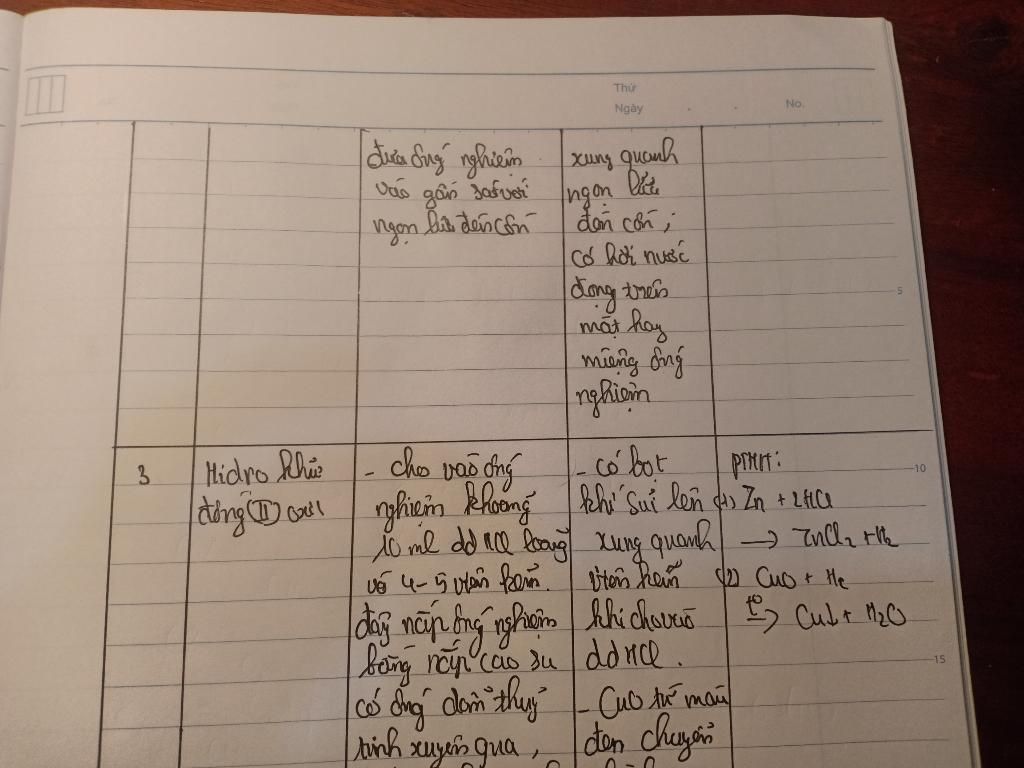 Thứ
Ngày . . No.
đưa ống nghiệm
vào gần sát với
ngọn lửa đèn cồn
xung quanh
ngọn lửa
đèn cồn,
có hơi nước
đọng trên
mặt hay
miệng ống
nghiệm
5
3
Hidro khử
đồng (II) oxit
- cho vào ống
nghiệm khoảng
10 ml dd HCl loãng
và 4-5 viên kẽm.
đậy nắp ống nghiệm
bằng nắp cao su
có ống dẫn thuỷ
tinh xuyên qua,
- có bọt
khí sủi lên
xung quanh
viên kẽm
khi cho vào
dd HCl.
- CuO từ màu
đen chuyển
PTHH:
(1) Zn + 2HCl
→ ZnCl₂ + H₂
(2) CuO + H₂
t° → Cu↓ + H₂O
10
15